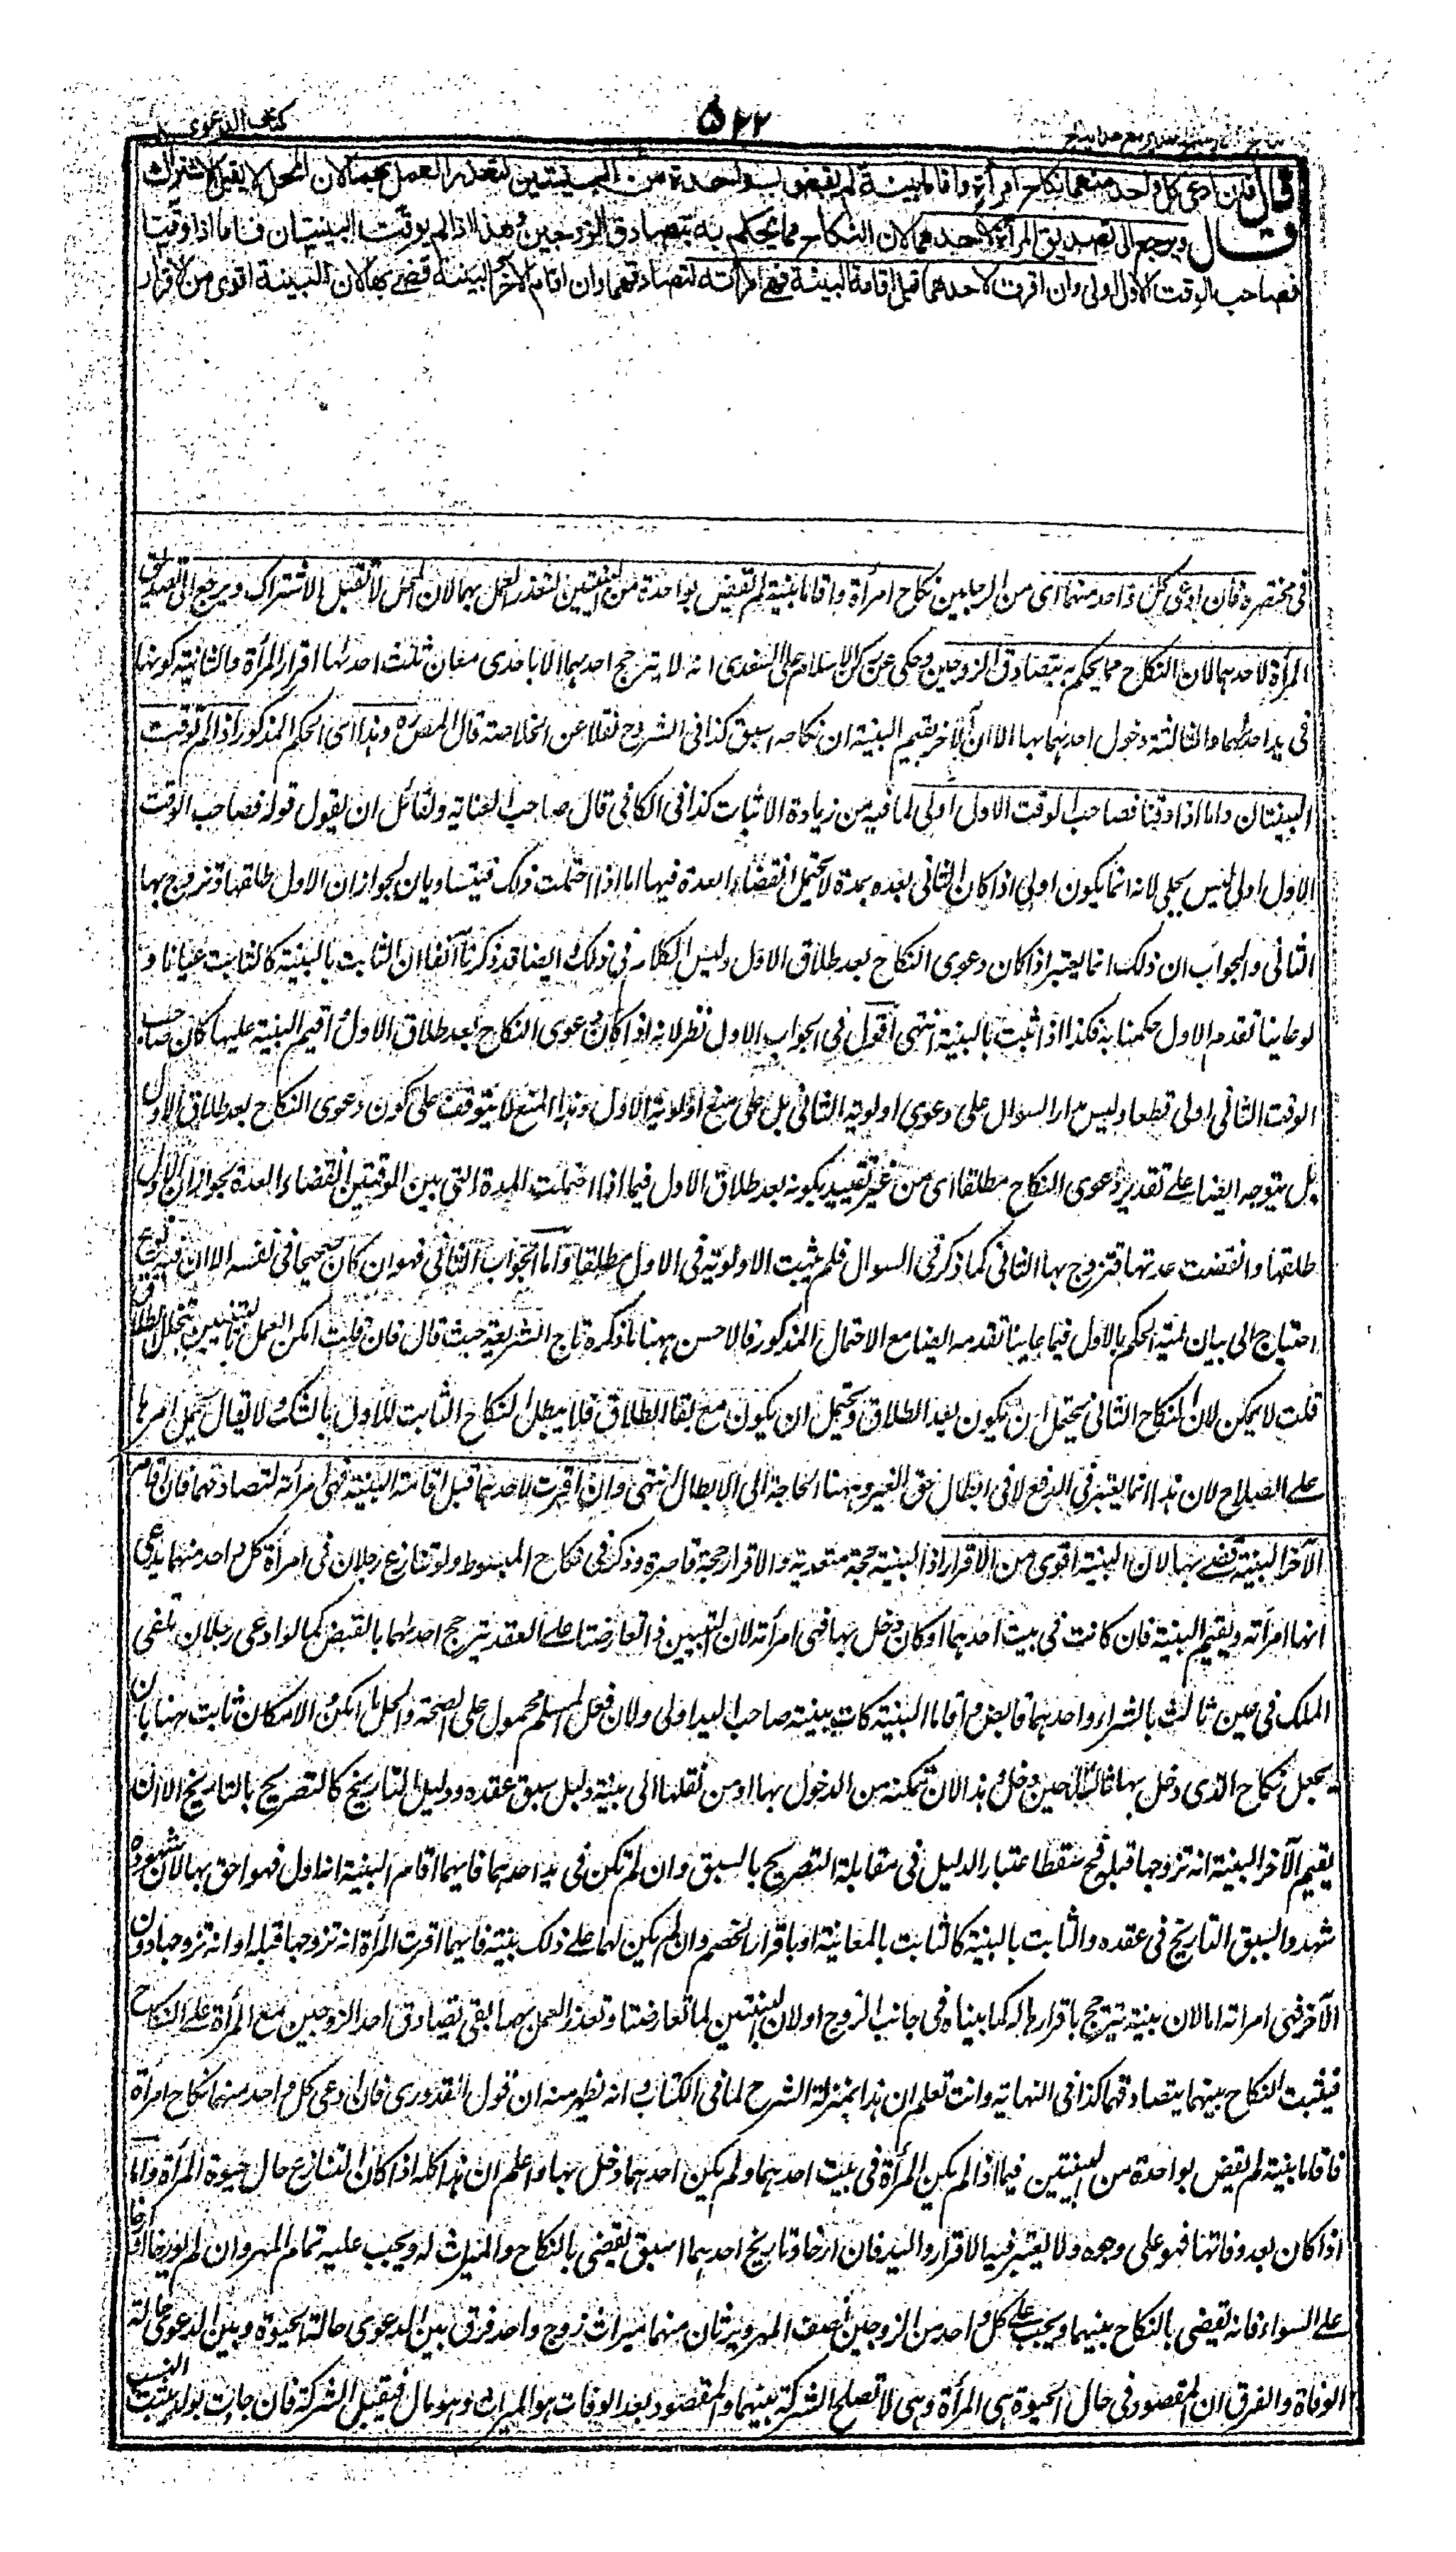 كتاب الدعوى
۵۲۲
قال فان ادعى كل واحد منهما نكاح امرأة واقاما بينة لم يقض بواحدة من البينتين لتعذر العمل بهما لان المحل لا يقبل الاشتراك
قال ويرجع الى تصديق المرأة لاحدهما لان النكاح مما يحكم به بتصادق الزوجين وهذا اذا لم يوقت البينتان فاما اذا وقتا
فصاحب الوقت الاول اولى وان اقرت لاحدهما قبل اقامة البينة فهي امرأته لتصادقهما وان اقام الآخر البينة قضي بها لان البينة اقوى من الاقرار
في مختصره فان ادعى كل واحد منهما اى من الرجلين نكاح امرأة واقاما بينة لم يقض بواحدة من البينتين لتعذر العمل بهما لان المحل لا يقبل الاشتراك ويرجع الى تصديق
المرأة لاحدهما لان النكاح مما يحكم به بتصادق الزوجين وحكى عن ركن الاسلام على السغدى انه لا يترجح احدهما الا باحدى معان ثلث احدها اقرار المرأة والثانية كونها
فى يد احدهما والثالثة دخول احدهما بها الا ان الآخر يقيم البينة ان نكاحه اسبق كذا فى الشروح نقلا عن الخلاصة قال المص ره وهذا اى الحكم المذكور اذا لم توقت
البينتان واما اذا وقتا فصاحب الوقت الاول اولى لما فيه من زيادة الاثبات كذا فى الكافى قال صاحب العناية ولقائل ان يقول قوله فصاحب الوقت
الاول اولى ليس بجلى لانه انما يكون اولى اذا كان الثانى بعده بمدة لا تحتمل انقضاء العدة فيها اما اذا احتملت ذلك فيتساويان لجواز ان الاول طلقها وتزوج بها
الثانى والجواب ان ذلك انما يعتبر اذا كان دعوى النكاح بعد طلاق الاول وليس الكلام فى ذلك وايضا قد ذكرنا آنفا ان الثابت بالبينة كالثابت عيانا و
لو عاينا تقدم الاول حكمنا به فكذا اذا ثبت بالبينة انتهى اقول فى الجواب الاول نظر لانه اذا كان دعوى النكاح بعد طلاق الاول و اقيم البينة عليها كان صاحب
الوقت الثانى اولى قطعا وليس مدار السوال على دعوى اولوية الثانى بل على منع اولوية الاول وهذا المنع لا يتوقف على كون دعوى النكاح بعد طلاق الاول
بل يتوجه ايضا على تقدير دعوى النكاح مطلقا اى من غير تقييد بكونه بعد طلاق الاول فيما اذا احتملت المدة التى بين الوقتين انقضاء العدة لجواز ان الاول
طلقها وانقضت عدتها فتزوج بها الثانى كما ذكر فى السوال فلم يثبت الاولوية فى الاول مطلقا واما الجواب الثانى فهو وان كان صحيحا فى نفسه الا ان فيه نوع
احتياج الى بيان لمية الحكم بالاول فيما عاينا تقدمه ايضا مع الاحتمال المذكور فالاحسن ههنا ما ذكره تاج الشريعة حيث قال فان قلت امكن العمل بالبينتين بتخلل الطلاق
قلت لا يمكن لان النكاح الثانى يحتمل ان يكون بعد الطلاق ويحتمل ان يكون مع بقاء الطلاق فلا يبطل النكاح الثابت للاول بالشك لا يقال يحمل امرها
على الصلاح لان هذا انما يعتبر فى الدفع لا فى ابطال حق الغير وههنا الحاجة الى الابطال انتهى وان اقرت لاحدهما قبل اقامة البينة فهى امرأته لتصادقهما فان اقام
الآخر البينة قضى بها لان البينة اقوى من الاقرار اذ البينة حجة متعدية والاقرار حجة قاصرة وذكر فى نكاح المبسوط ولو تنازع رجلان فى امرأة كل واحد منهما يدعى
انها امرأته ويقيم البينة فان كانت فى بيت احدهما او كان دخل بها فهى امرأته لان البينتين اذا تعارضتا على العقد يترجح احدهما بالقبض كما لو ادعى رجلان تلقى
الملك فى عين ثالث بالشراء واحدهما قابض واقاما البينة كانت بينة صاحب اليد اولى ولان فعل المسلم محمول على الصحة والحل ما امكن والامكان ثابت ههنا بان
يجعل نكاح الذى دخل بها سابقا حين دخل هذا لان تمكنه من الدخول بها او من نقلها الى بيته دليل سبق عقده ودليل التاريخ كالتصريح بالتاريخ الا ان
يقيم الآخر البينة انه تزوجها قبله فح سقط اعتبار الدليل فى مقابلة التصريح بالسبق وان لم تكن فى يد احدهما فايهما اقام البينة انه اول فهو احق بها لان شهوده
شهدوا بسبق التاريخ فى عقده والثابت بالبينة كالثابت بالمعاينة او باقرار الخصم وان لم يكن لهما على ذلك بينة فايهما اقرت المرأة انه تزوجها قبله او انه تزوجها دون
الآخر فهى امرأته اما لان بينته تترجح باقرارها له كما بيناه فى جانب الزوج او لان البينتين لما تعارضتا وتعذر العمل بهما بقى تصادق احد الزوجين مع المرأة على النكاح
فيثبت النكاح بينهما بتصادقهما كذا فى النهاية وانت تعلم ان هذا بمنزلة الشرح لما فى الكتاب و انه يظهر منه ان قول القدورى فان ادعى كل واحد منهما نكاح امرأة
فاقاما بينة لم يقض بواحدة من البينتين فيما اذا لم يكن المرأة فى بيت احدهما ولم يكن احدهما دخل بها واعلم ان هذا كله اذا كان التنازع حال حيوة المرأة واما
اذا كان بعد وفاتها فهو على وجوه ولا يعتبر فيه الاقرار واليد فان ارخا وتاريخ احدهما اسبق يقضى بالنكاح والميراث له ويجب عليه تمام المهر وان لم يورخا او ارخا
على السواء فانه يقضى بالنكاح بينهما ويجب على كل واحد من الزوجين نصف المهر ويرثان منهما ميراث زوج واحد فرق بين الدعوى حالة الحيوة وبين الدعوى حالة
الوفاة والفرق ان المقصود فى حال الحيوة هى المرأة وهى لا تصلح الشركة بينهما والمقصود بعد الوفات هو الميراث وهو مال فيقبل الشركة فان جاءت بولد يثبت النسب